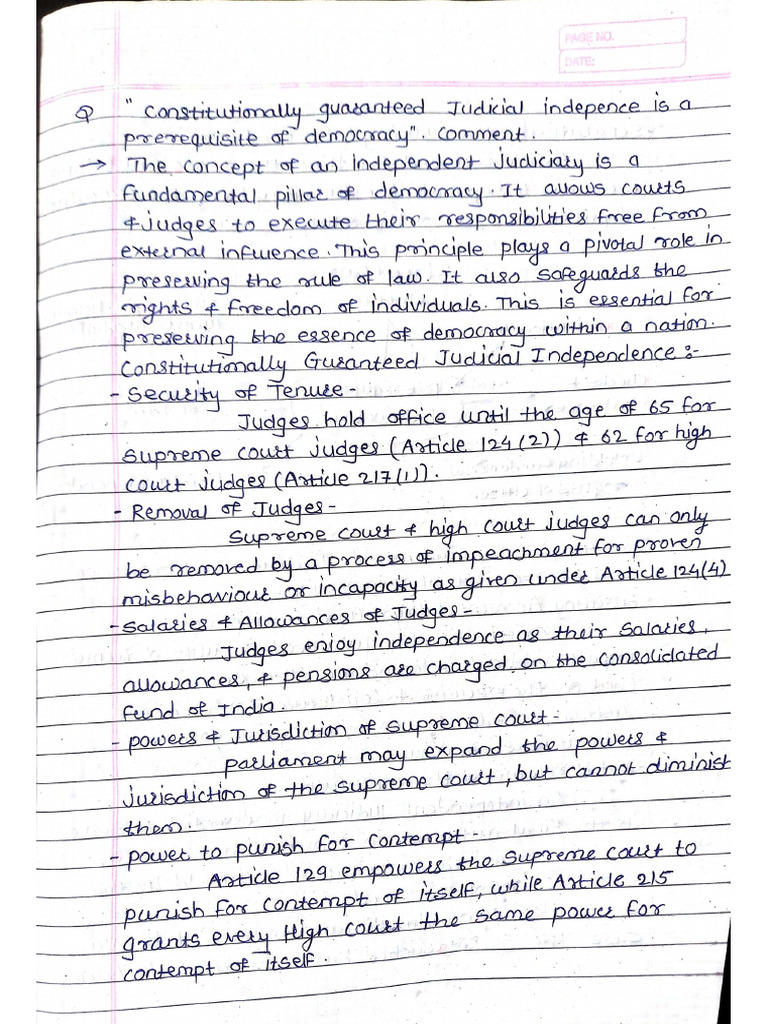 PAGE NO.
DATE:
Q "Constitutionally guaranteed Judicial indepence is a
prerequisite of democracy". Comment.
→ The concept of an independent judiciary is a
fundamental pillar of democracy. It allows courts
& judges to execute their responsibilities free from
external influence. This principle plays a pivotal role in
preserving the rule of law. It also safeguards the
rights & freedom of individuals. This is essential for
preserving the essence of democracy within a nation.
Constitutionally Guranteed Judicial Independence :-
- Security of Tenure -
Judges hold office until the age of 65 for
Supreme court judges (Article 124(2)) & 62 for high
court judges (Article 217(1)).
- Removal of Judges -
Supreme court & high court judges can only
be removed by a process of impeachment for proven
misbehaviour or incapacity as given under Article 124(4)
- Salaries & Allowances of Judges -
Judges enjoy independence as their salaries,
allowances, & pensions are charged on the consolidated
fund of India.
- powers & Jurisdiction of Supreme court -
parliament may expand the powers &
jurisdiction of the supreme court, but cannot diminist
them.
- power to punish for contempt -
Article 129 empowers the supreme court to
punish for contempt of itself, while Article 215
grants every High court the same power for
contempt of itself.